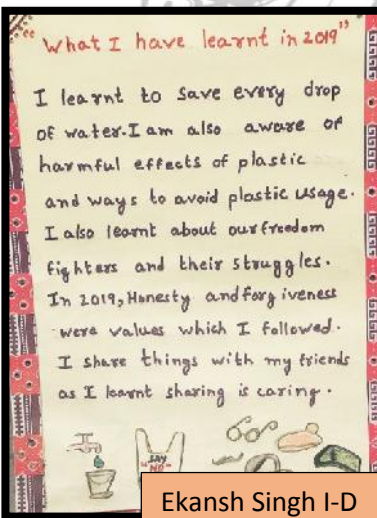 "What I have learnt in 2019"
I learnt to save every drop
of water. I am also aware of
harmful effects of plastic
and ways to avoid plastic usage.
I also learnt about our freedom
fighters and their struggles.
In 2019, Honesty and forgiveness
were values which I followed.
I share things with my friends
as I learnt sharing is caring.
SAY
"NO"
Ekansh Singh I-D